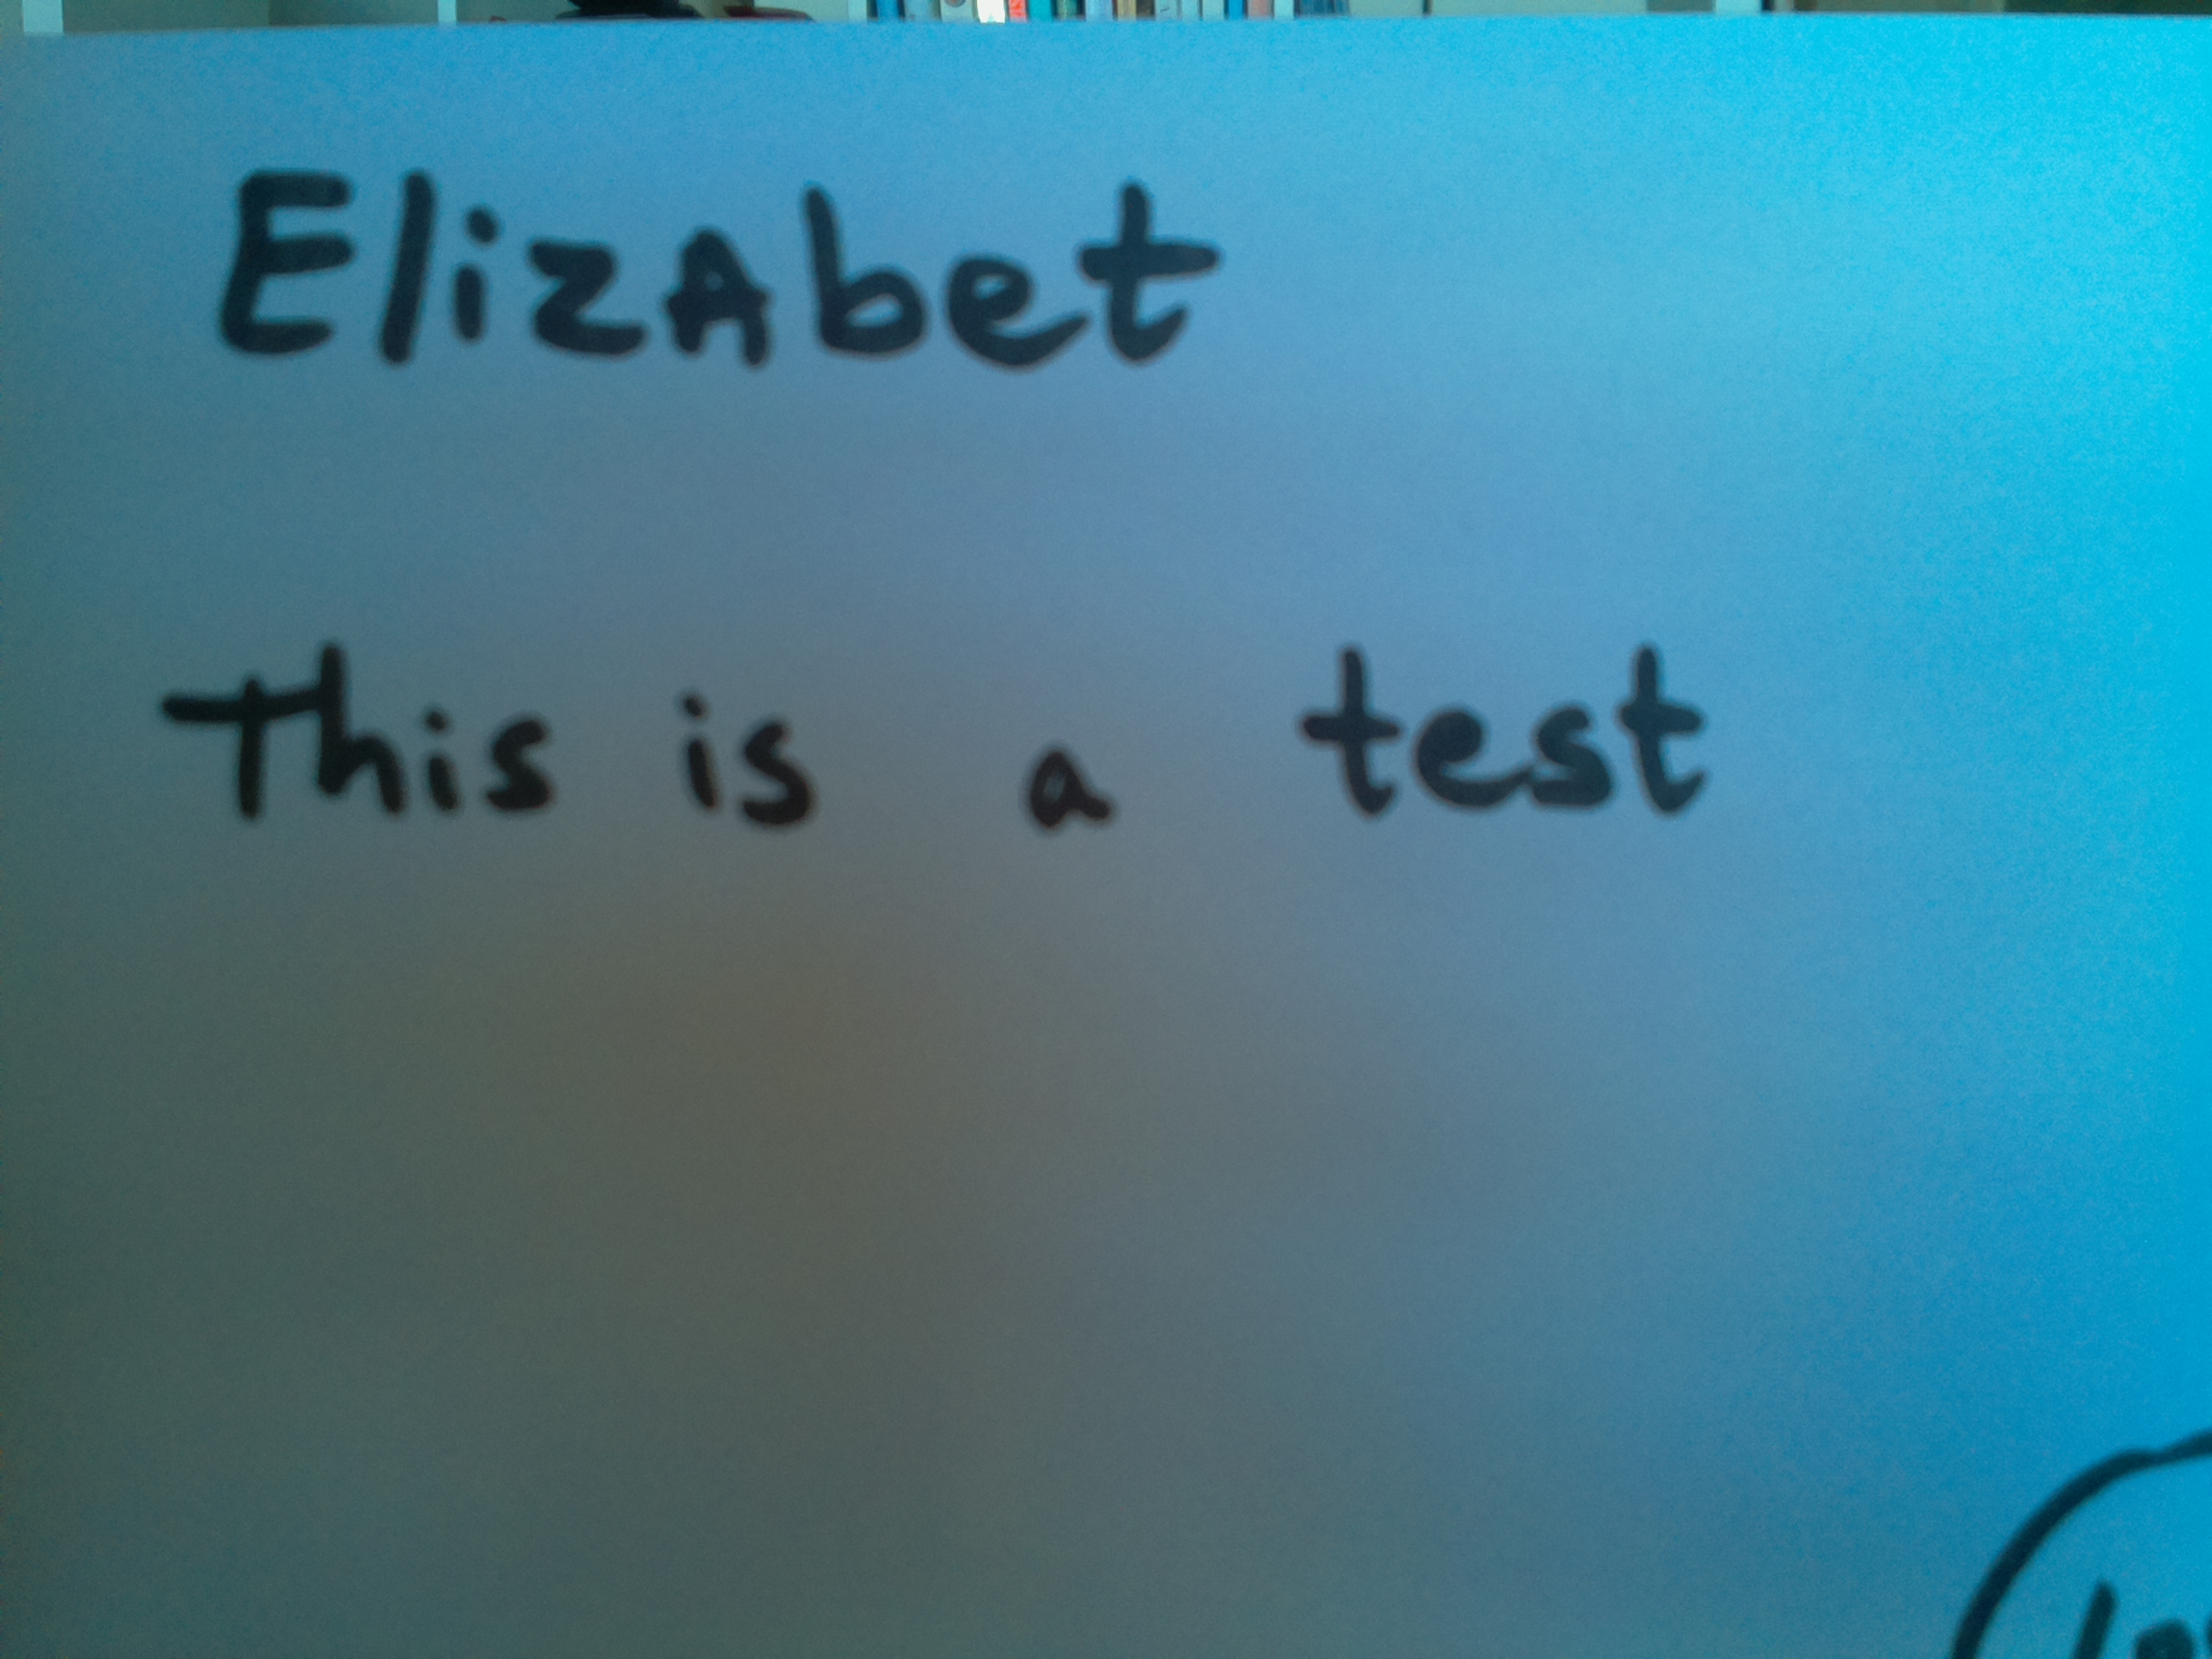 ElizAbet
this is a test